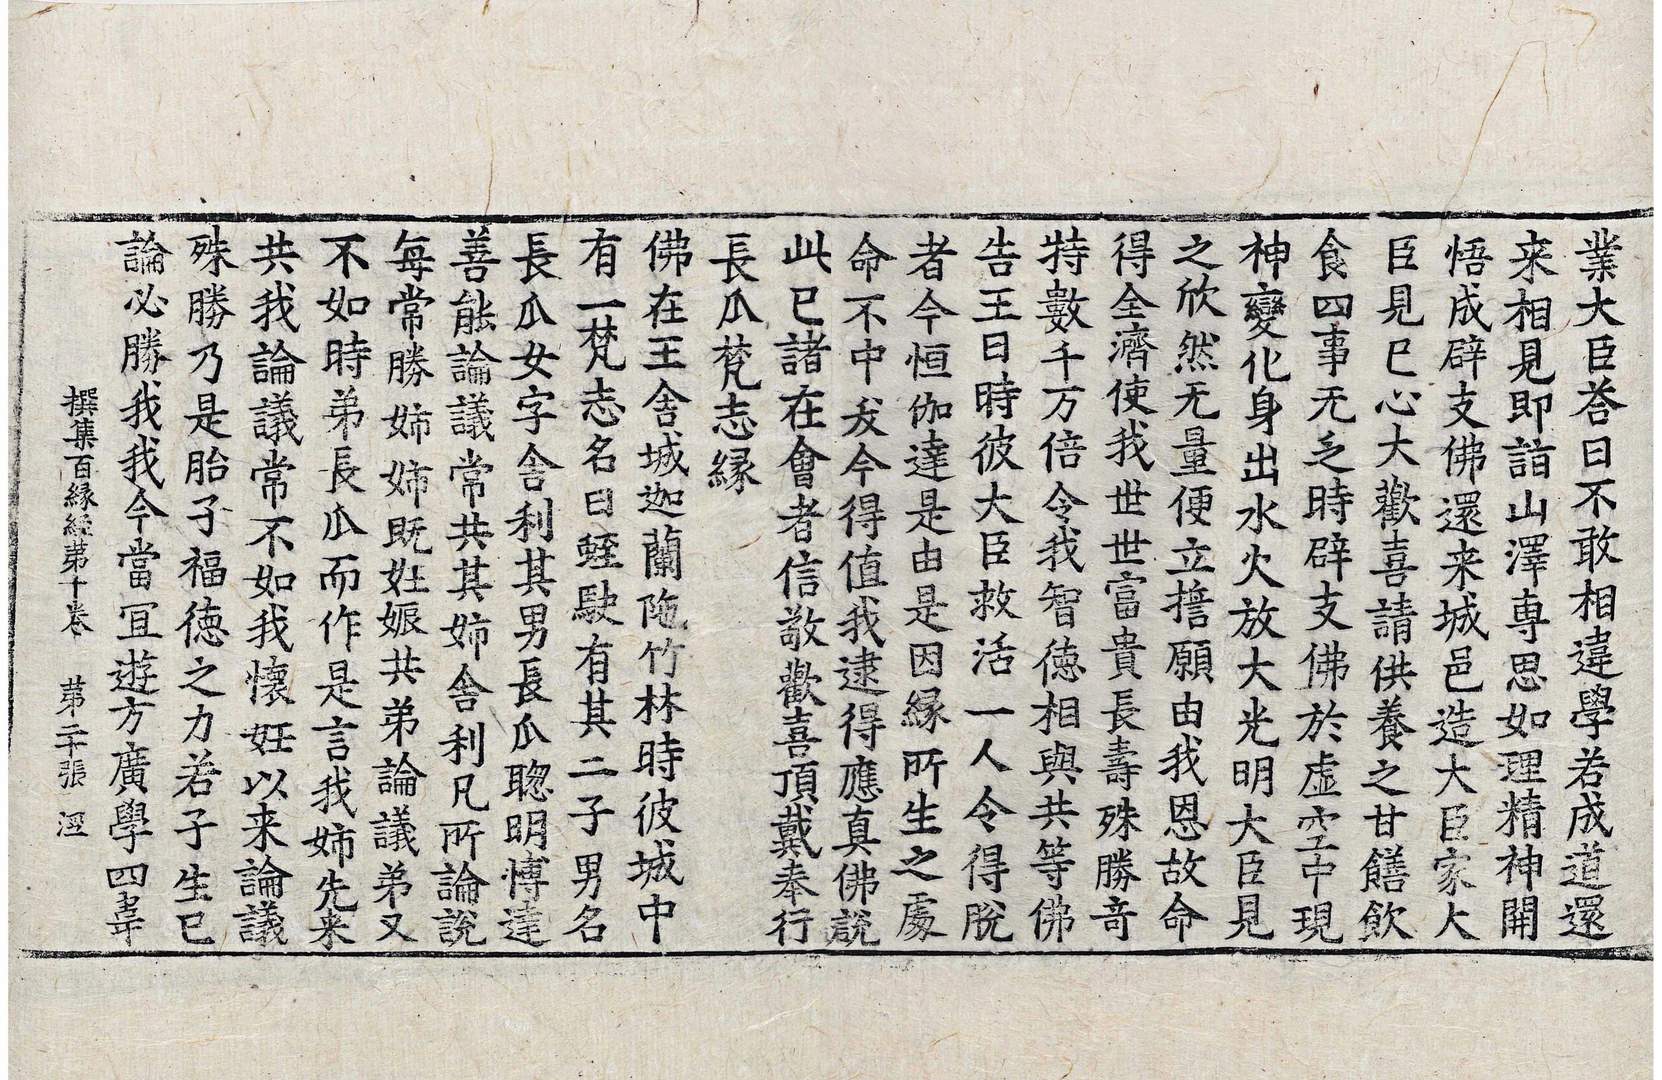 業大臣荅曰不敢相違學若成道還
来相見即詣山澤專思如理精神開
悟成辟支佛還来城邑造大臣家大
臣見已心大歡喜請供養之甘饍飲
食四事无乏時辟支佛於虚空中現
神變化身出水火放大光明大臣見
之欣然无量便立擔願由我恩故命
得全濟使我世世富貴長壽殊勝竒
特數千万倍令我智徳相與共等佛
告王曰時彼大臣救活一人令得脫
者今恒伽達是由是因縁所生之處
命不中夭今得值我逮得應真佛說
此已諸在會者信敬歡喜頂戴奉行
長瓜梵志縁
佛在王舎城迦蘭陁竹林時彼城中
有一梵志名曰蛭駛有其二子男名
長瓜女字舎利其男長瓜聡明博達
善能論議常共其姉舎利凡所論說
每常勝姉姉既妊娠共弟論議弟又
不如時弟長瓜而作是言我姉先来
共我論議常不如我懷妊以来論議
殊勝乃是胎子福徳之力若子生已
論必勝我我今當冝遊方廣學四韋
撰集百縁經第十卷　第二十張　涇